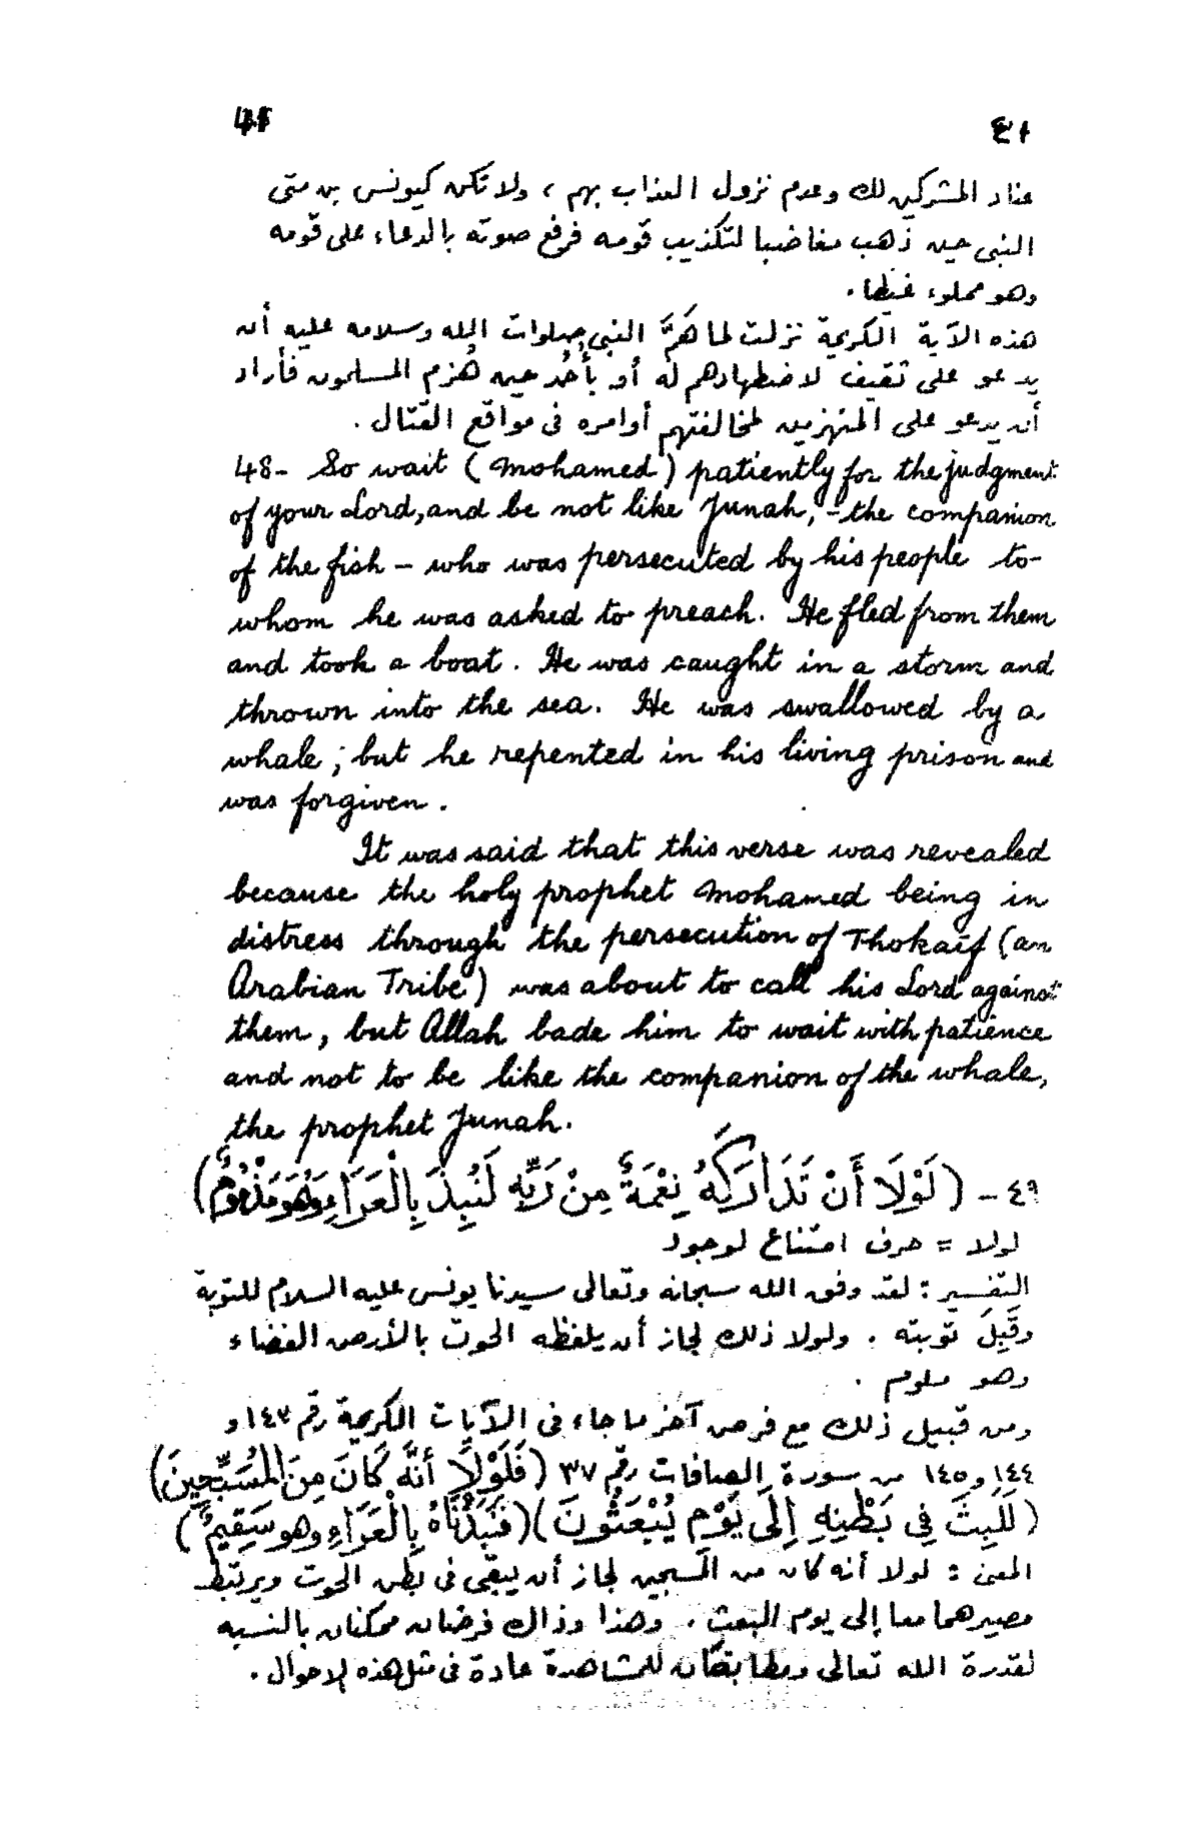 41
٤١
عناد المشركين لك وعدم نزول العذاب بهم ، ولا تكن كيونس بن متى
النبى حين ذهب مغاضبا لتكذيب قومه فرفع صوته بالدعاء على قومه
وهو مملوء غيظا .
هذه الآية الكريمة نزلت لما هَمَّ النبى صلوات الله وسلامه عليه أن
يدعو على ثقيف لاضطهادهم له أو بأُحُد حين هُزم المسلمون فأراد
أن يدعو على المنهزمين لمخالفتهم أوامره فى مواقع القتال .
48- So wait (Mohamed) patiently for the judgment
of your Lord, and be not like Junah, - the companion
of the fish - who was persecuted by his people to-
whom he was asked to preach. He fled from them
and took a boat. He was caught in a storm and
thrown into the sea. He was swallowed by a
whale; but he repented in his living prison and
was forgiven.
It was said that this verse was revealed
because the holy prophet Mohamed being in
distress through the persecution of Thokaif (an
Arabian Tribe) was about to call his Lord against
them, but Allah bade him to wait with patience
and not to be like the companion of the whale,
the prophet Junah.
٤٩ - (لَوْلَا أَنْ تَدَارَكَهُ نِعْمَةٌ مِنْ رَبِّهِ لَنُبِذَ بِالْعَرَاءِ وَهُوَ مَذْمُومٌ)
لولا = حرف امتناع لوجود
التفسير : لقد وفق الله سبحانه وتعالى سيدنا يونس عليه السلام للتوبة
وقَبِلَ توبته . ولولا ذلك لجاز أن يلفظه الحوت بالأرض الفضاء
وهو ملوم .
ومن قبيل ذلك مع فرض آخر ما جاء فى الآيات الكريمة رقم ١٤٣ و
١٤٤ و ١٤٥ من سورة الصافات رقم ٣٧ (فَلَوْلَا أَنَّهُ كَانَ مِنَ الْمُسَبِّحِينَ)
(لَلَبِثَ فِي بَطْنِهِ إِلَى يَوْمِ يُبْعَثُونَ) (فَنَبَذْنَاهُ بِالْعَرَاءِ وهو سَقِيمٌ)
المعنى : لولا أنه كان من المسبحين لجاز أن يبقى فى بطن الحوت ويرتبط
مصيرهما معا إلى يوم البعث . وهذا وذاك فرضان ممكنان بالنسبه
لقدرة الله تعالى ومطابقان للمشاهدة عادة فى مثل هذه الاحوال .